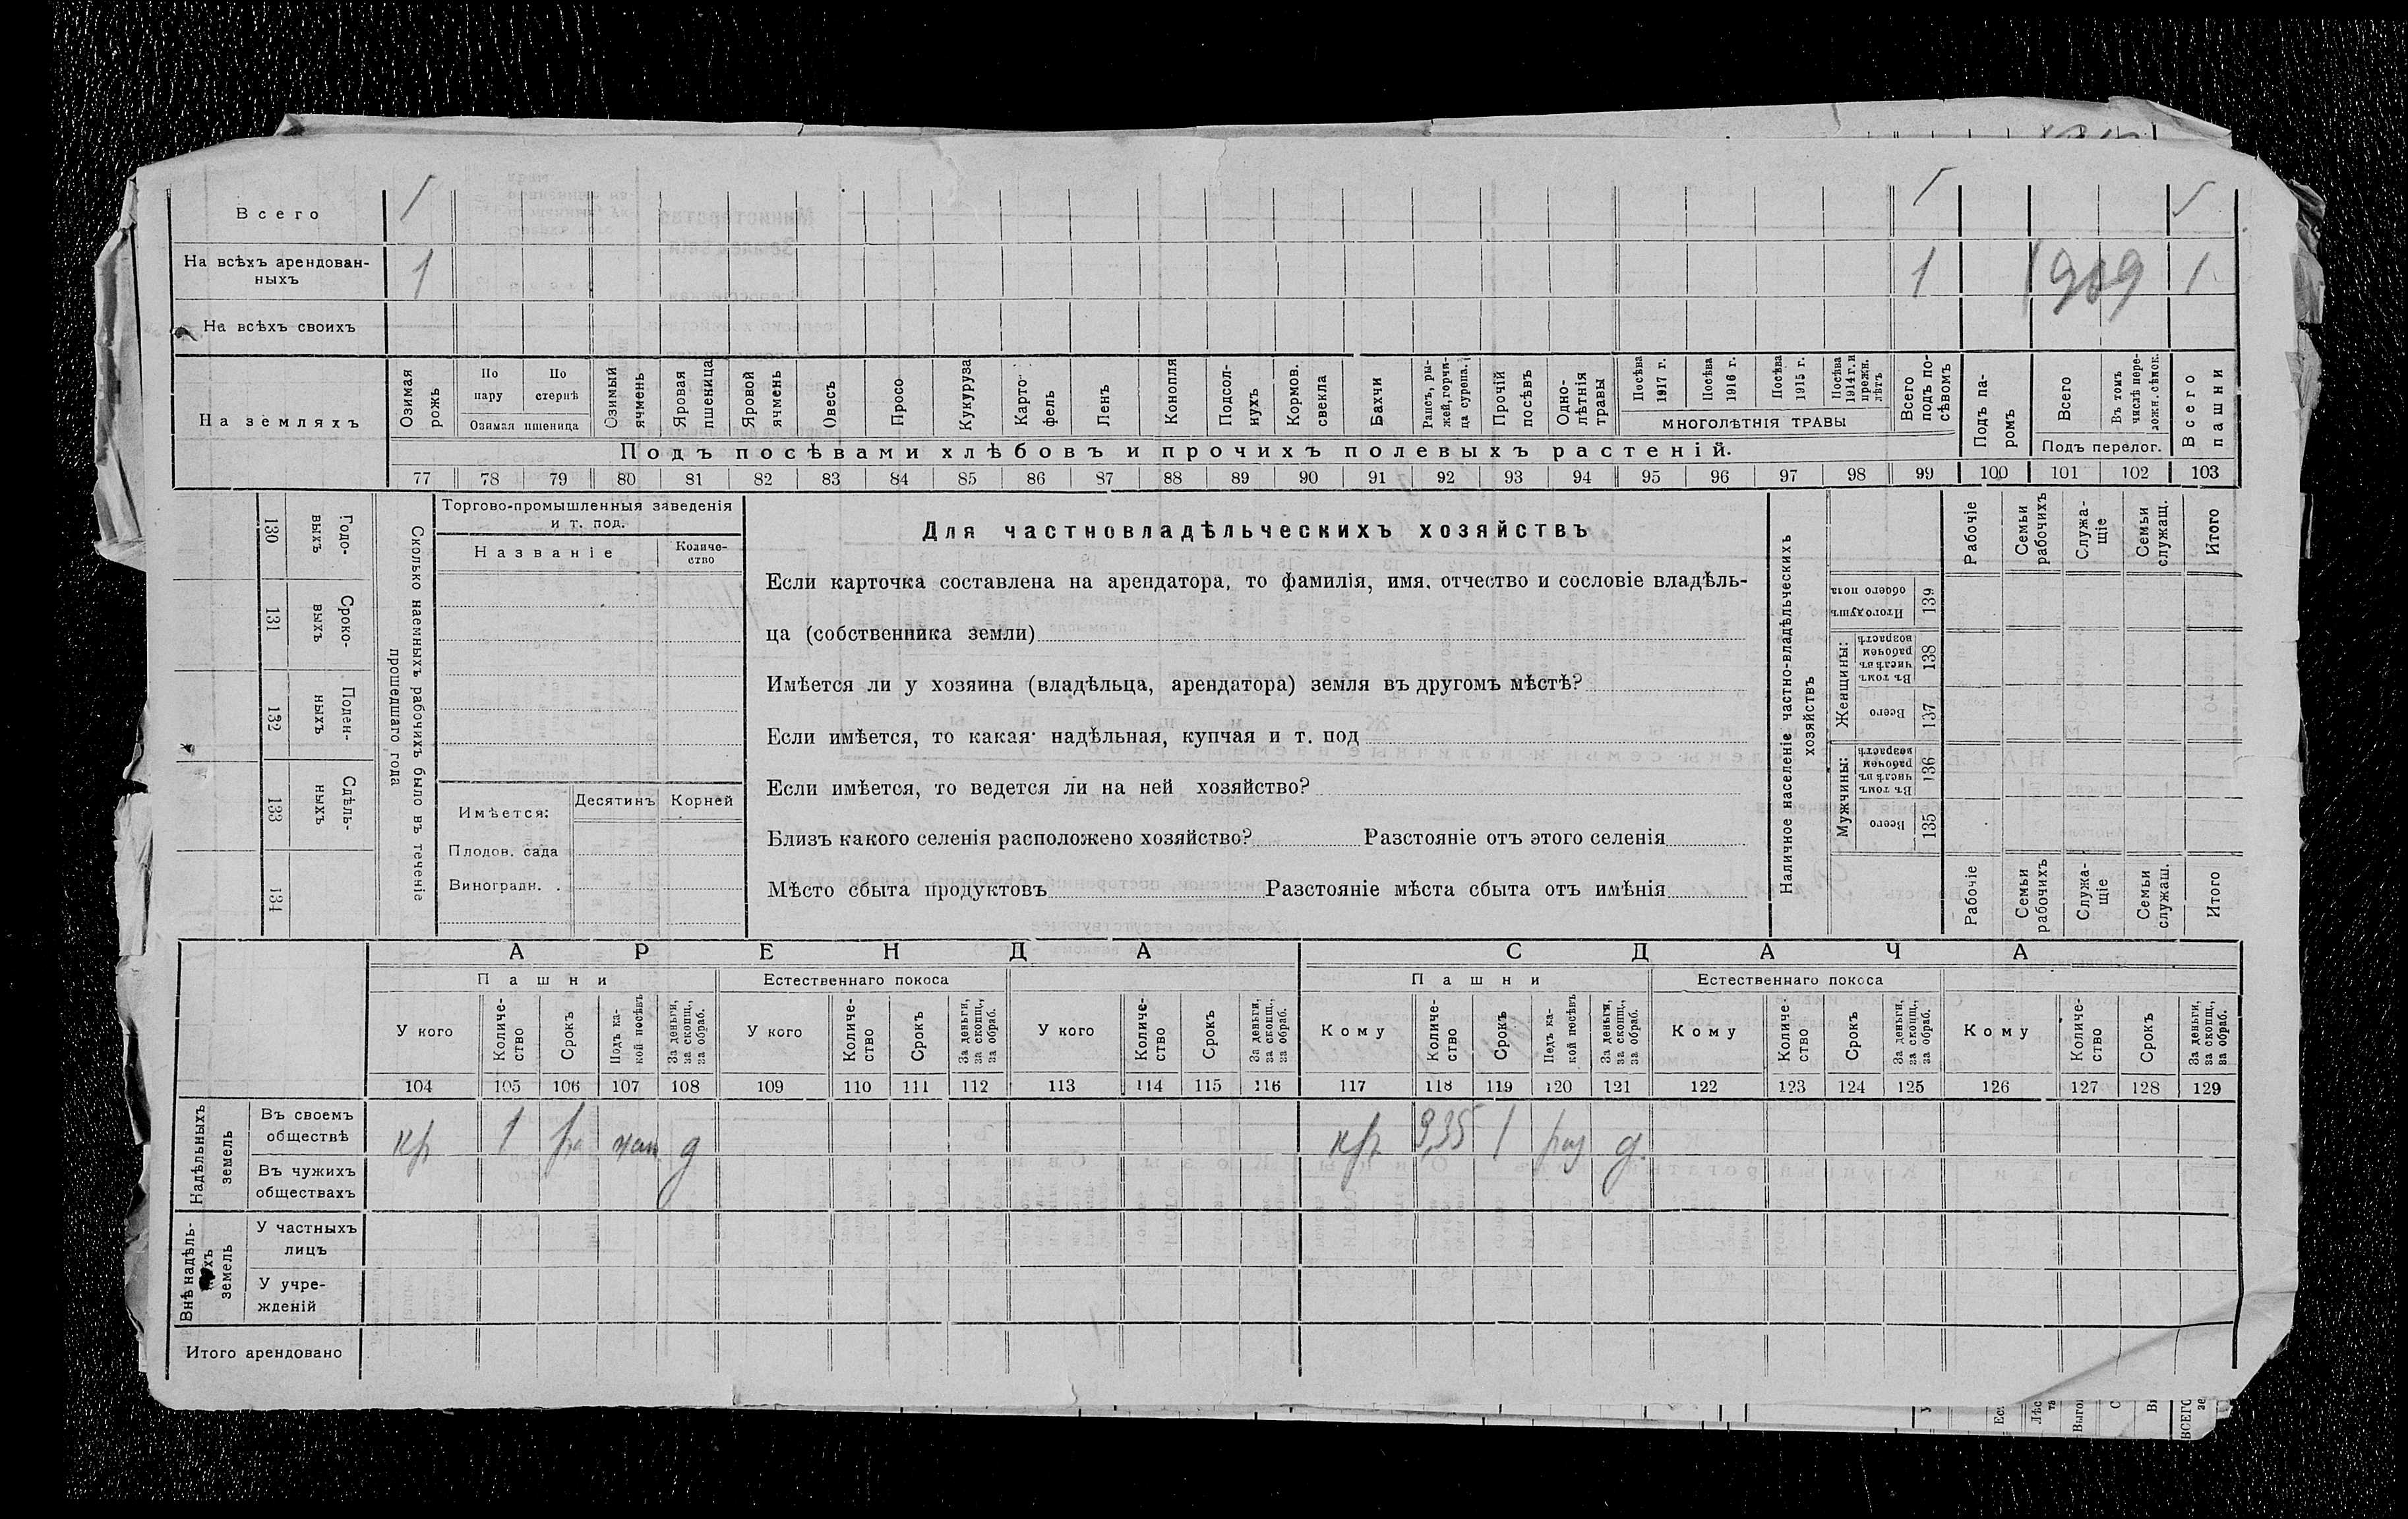 Всего 1 1 1
На всѣхъ арендован-
ныхъ 1 1 1909 1
На всѣхъ своихъ
На земляхъ
Озимая рожь
По пару
По стернѣ
Озимая пшеница
Озимый ячмень
Яровая пшеница
Яровой ячмень
Овесъ
Просо
Кукуруза
Карто-
фель
Ленъ
Конопля
Подсол-
нухъ
Кормов. свекла
Бахчи
Рапсъ, ры-
жей, горчи-
ца сурепа.
Прочій посѣвъ
Одно-
лѣтнія травы
Посѣва 1917 г.
Посѣва 1916 г.
Посѣва 1915 г.
Посѣва 1914 г. и прежн. лѣтъ
МНОГОЛѢТНІЯ ТРАВЫ
Всего подъ по-
сѣвомъ
Подъ па-
ромъ
Всего
Въ томъ числѣ пере-
ложн. сѣнок.
Подъ перелог.
Всего пашни
Подъ посѣвами хлѣбовъ и прочихъ полевыхъ растеній.
77 78 79 80 81 82 83 84 85 86 87 88 89 90 91 92 93 94 95 96 97 98 99 100 101 102 103
130 Годо-
выхъ
131 Сроко-
выхъ
132 Поден-
ныхъ
133 Сдѣль-
ныхъ
134
Сколько наемныхъ рабочихъ было въ теченіе
прошедшаго года
Торгово-промышленныя заведенія
и т. под.
Названіе
Количе-
ство
Имѣется: Десятинъ Корней
Плодов. сада
Виноградн.
Для частновладѣльческихъ хозяйствъ
Если карточка составлена на арендатора, то фамилія, имя, отчество и сословіе владѣль-
ца (собственника земли)
Имѣется ли у хозяина (владѣльца, арендатора) земля въ другомъ мѣстѣ?
Если имѣется, то какая: надѣльная, купчая и т. под
Если имѣется, то ведется ли на ней хозяйство?
Близъ какого селенія расположено хозяйство? Разстояніе отъ этого селенія
Мѣсто сбыта продуктовъ Разстояніе мѣста сбыта отъ имѣнія
Наличное населеніе частно-владѣльческихъ
хозяйствъ
Рабочіе
Семьи рабочихъ
Служа-
щіе
Семьи служащ.
Итого
Итого душъ обоего пола 139
Женщины:
Въ томъ числѣ въ рабочемъ возрастѣ 138
Всего 137
Мужчины:
Въ томъ числѣ въ рабочемъ возрастѣ 136
Всего 135
Рабочіе
Семьи рабочихъ
Служа-
щіе
Семьи служащ.
Итого
АРЕНДА СДАЧА
Пашни Естественнаго покоса Пашни Естественнаго покоса
У кого
Количе-
ство
Срокъ
Подъ ка-
кой посѣвъ
За деньги, за скопщ., за обраб.
У кого
Количе-
ство
Срокъ
За деньги, за скопщ., за обраб.
У кого
Количе-
ство
Срокъ
За деньги, за скопщ., за обраб.
Кому
Количе-
ство
Срокъ
Подъ ка-
кой посѣвъ
За деньги, за скопщ., за обраб.
Кому
Количе-
ство
Срокъ
За деньги, за скопщ., за обраб.
Кому
Количе-
ство
Срокъ
За деньги, за скопщ., за обраб.
104 105 106 107 108 109 110 111 112 113 114 115 116 117 118 119 120 121 122 123 124 125 126 127 128 129
Надѣльныхъ
земель
Въ своемъ
обществѣ
кр 1 д кр 9,35 1 раз д.
Въ чужихъ
обществахъ
Внѣ надѣль-
ныхъ
земель
У частныхъ
лицъ
У учре-
жденій
Итого арендовано